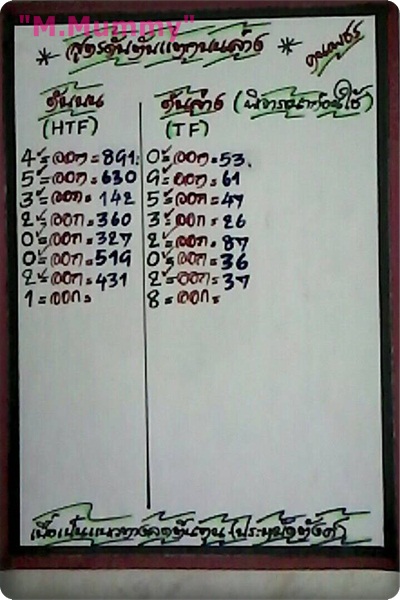 "M.Mummy"
* สูตรดับทันแทุกบนล่าง *
ดับบน
(HTF)
ดับล่าง (พิจารณาก่อนใช้)
(TF)
4 = ออก = 891
5 = ออก = 630
3 = ออก = 142
2 = ออก = 360
0 = ออก = 327
0 = ออก = 519
2 = ออก = 431
1 = ออก =
0 = ออก = 53
9 = ออก = 61
5 = ออก = 47
3 = ออก = 26
2 = ออก = 87
0 = ออก = 36
2 = ออก = 37
8 = ออก =
เพื่อเป็นแนวทางลดต้นทุน